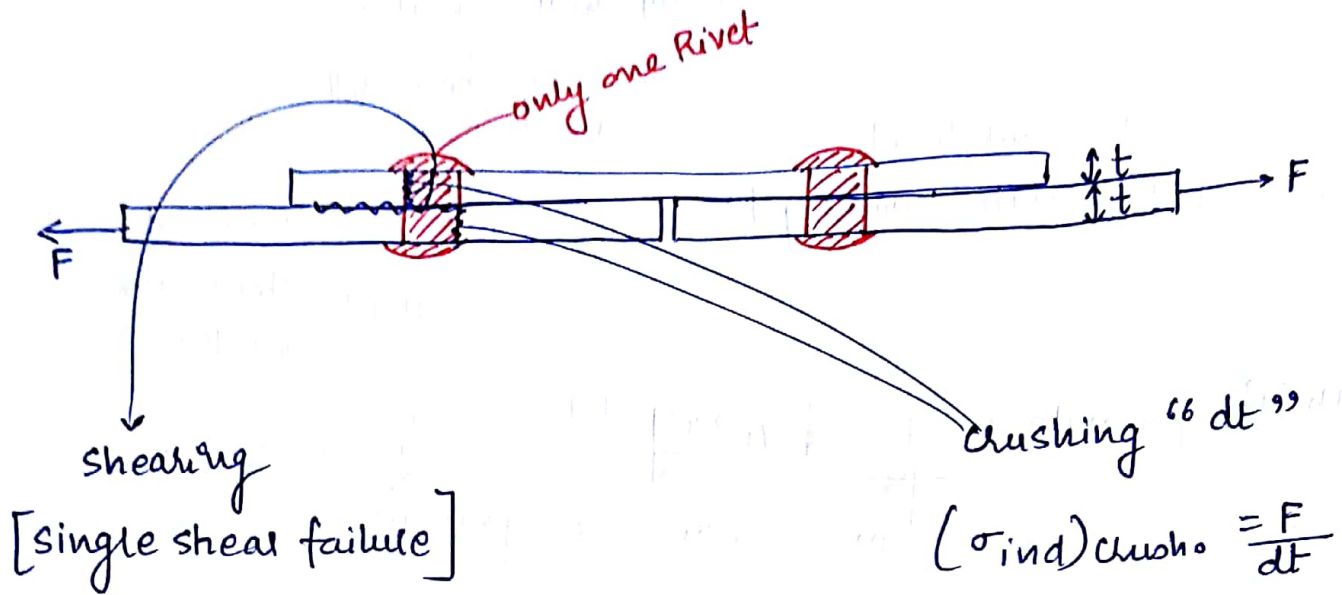 only one Rivet
t
t
F
F
shearing
[single shear failure]
crushing “dt”
(σind)crush. = F/dt